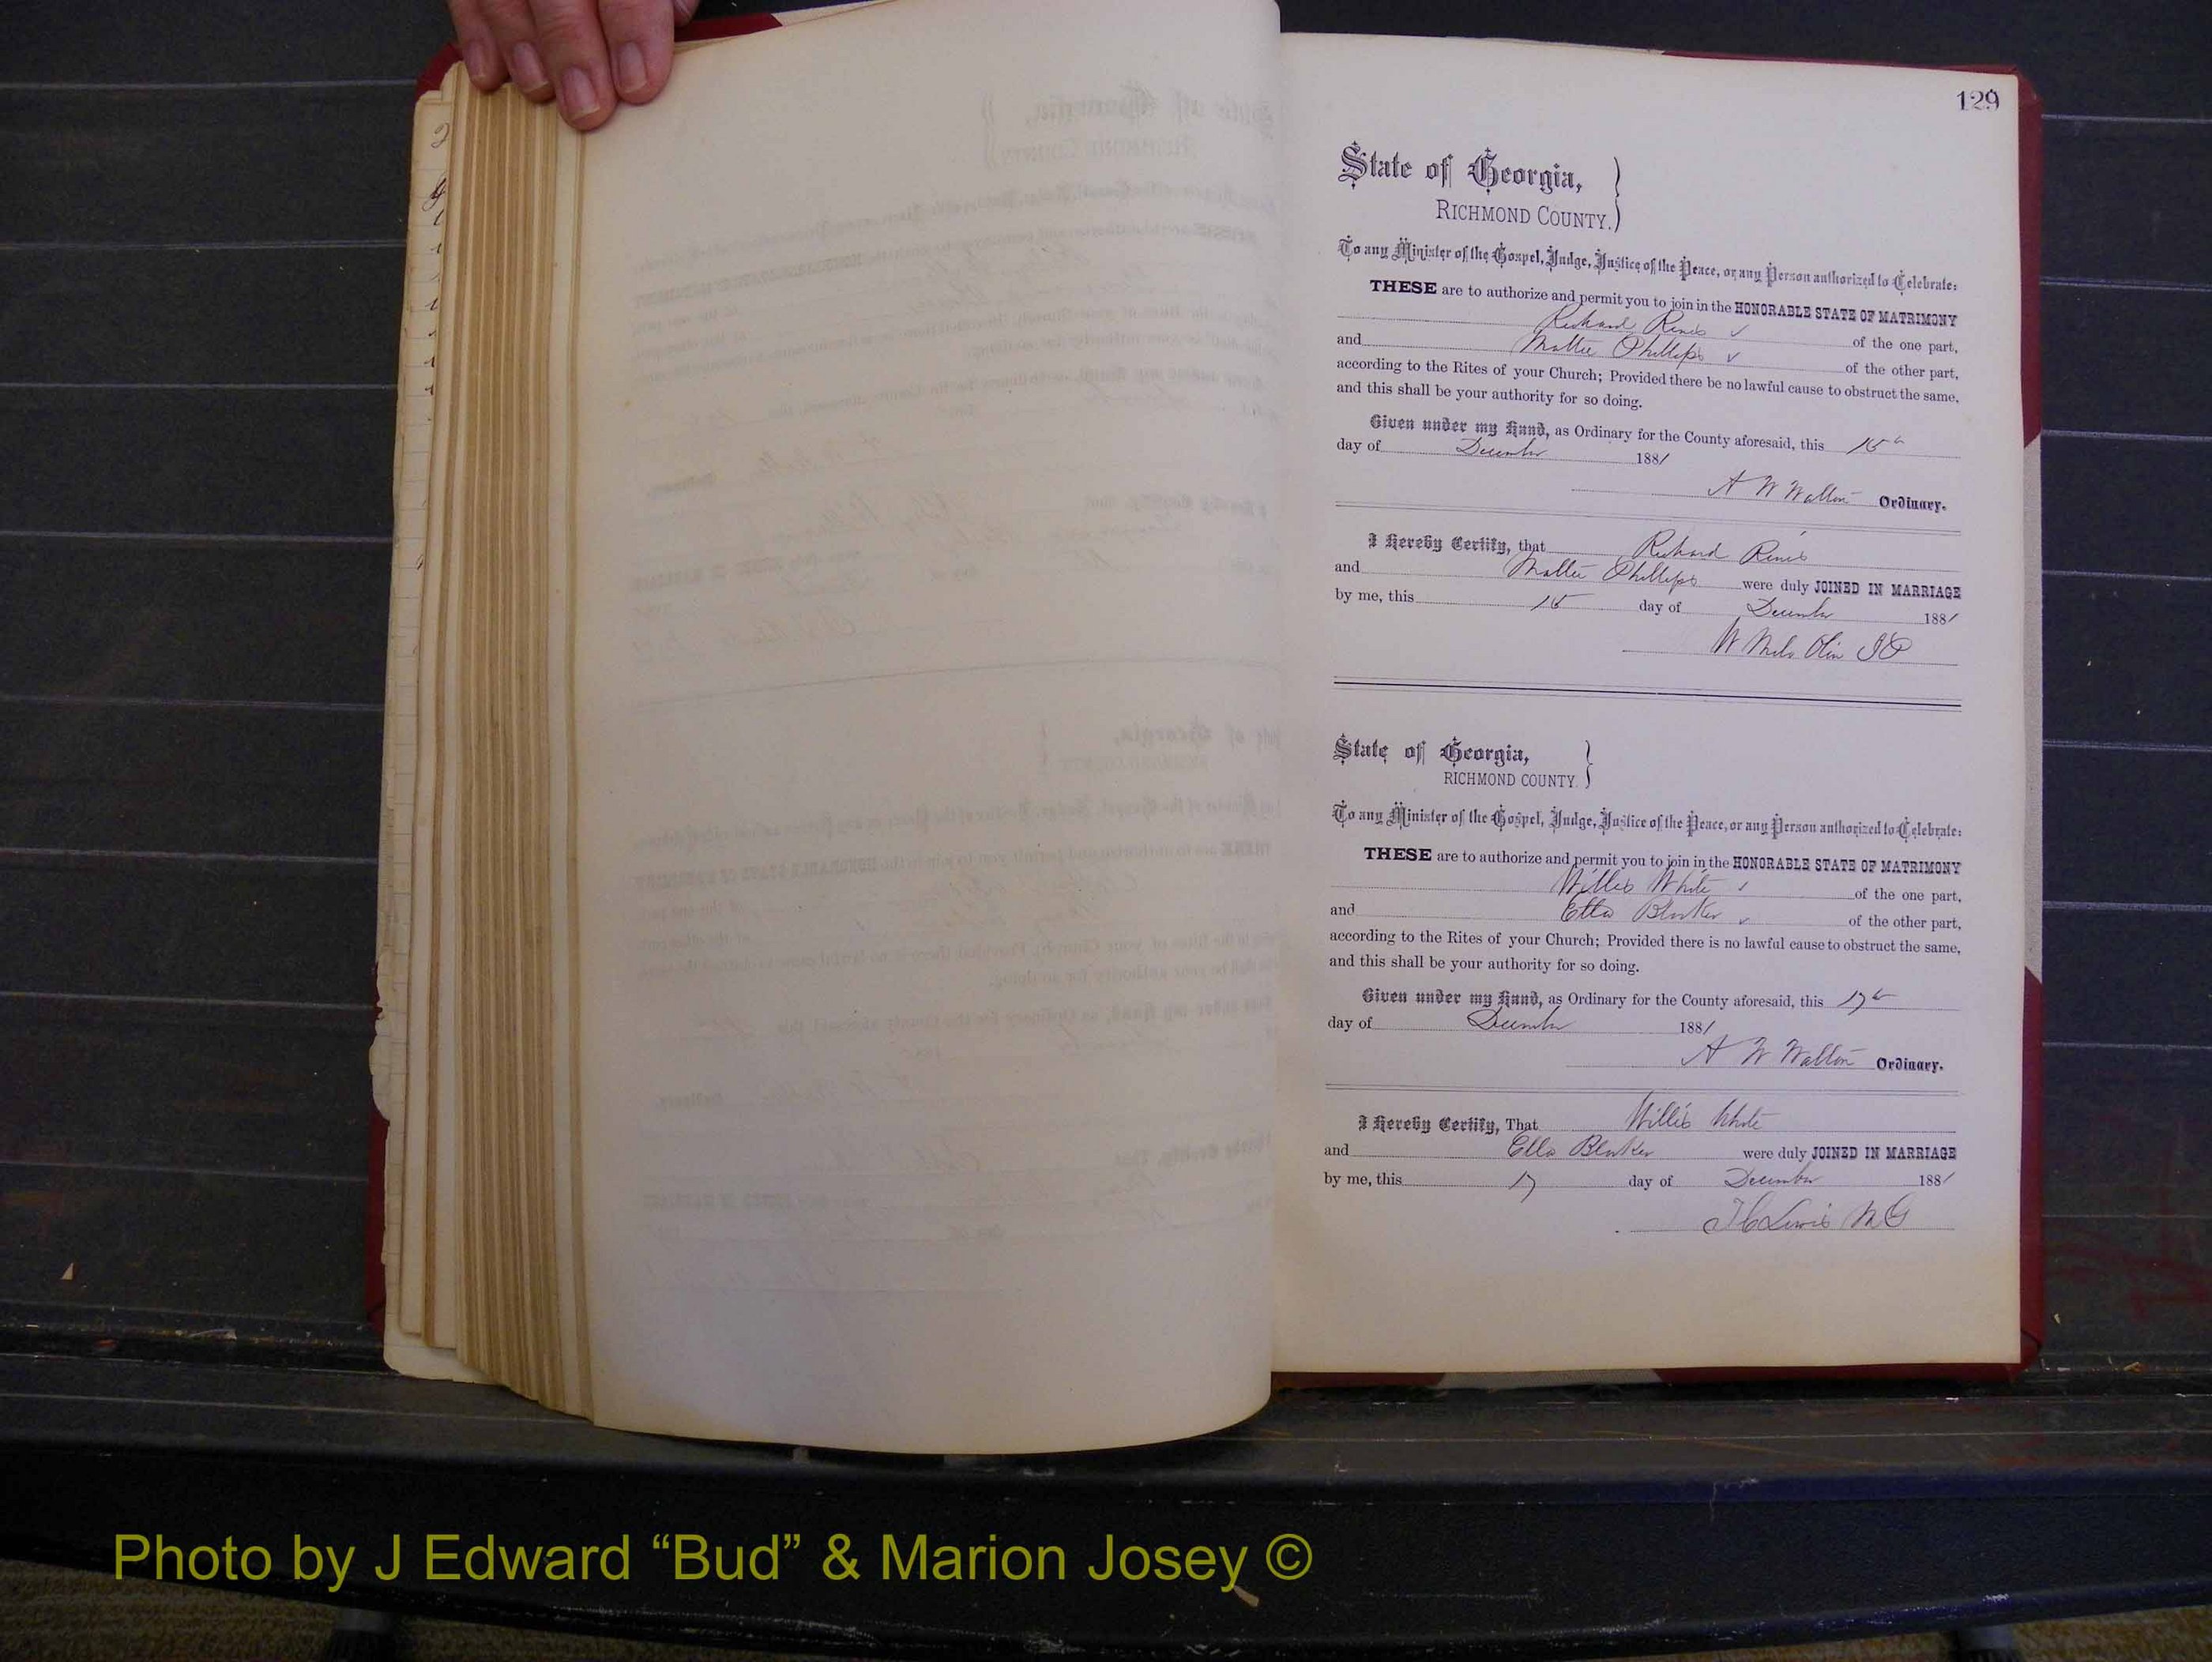 129
State of Georgia,
RICHMOND COUNTY.
To any Minister of the Gospel, Judge, Justice of the Peace, or any Person authorized to Celebrate:
THESE are to authorize and permit you to join in the HONORABLE STATE OF MATRIMONY
Richard Rines of the one part,
and Mattie Phillips of the other part,
according to the Rites of your Church; Provided there be no lawful cause to obstruct the same,
and this shall be your authority for so doing.
Given under my Hand, as Ordinary for the County aforesaid, this 15th
day of December 1881
A W Walton Ordinary.
I Hereby Certify, that Richard Rines
and Mattie Phillips were duly JOINED IN MARRIAGE
by me, this 15 day of December 1881
W Milo Olin JP
State of Georgia,
RICHMOND COUNTY.
To any Minister of the Gospel, Judge, Justice of the Peace, or any Person authorized to Celebrate:
THESE are to authorize and permit you to join in the HONORABLE STATE OF MATRIMONY
Willis White of the one part,
and Ella of the other part,
according to the Rites of your Church; Provided there is no lawful cause to obstruct the same,
and this shall be your authority for so doing.
Given under my Hand, as Ordinary for the County aforesaid, this 17th
day of December 1881
A W Walton Ordinary.
I Hereby Certify, That Willis White
and Ella were duly JOINED IN MARRIAGE
by me, this 17 day of December 1881
Lewis MG
Photo by J Edward “Bud” & Marion Josey ©